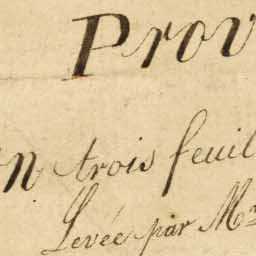 Prov
n trois feuil
Levée par Mr